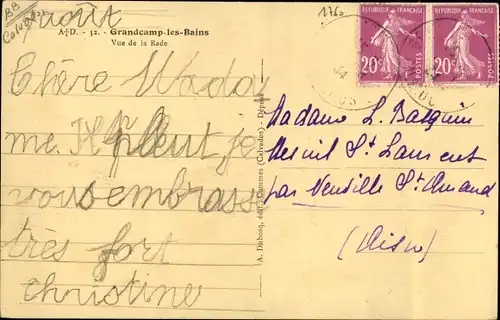 BB
août
A.D. - 32. - Grandcamp-les-Bains
Vue de la Rade
Chère Mada
me. Il pleut, je
vous embrasse
très fort
Christine
A. Dubosq, édit., Commes (Calvados) - Déposé
1760
REPUBLIQUE FRANÇAISE
20c
POSTES
REPUBLIQUE FRANÇAISE
20c
POSTES
Madame L.
Mesnil St Laurent
par Neuville St Amand
(Aisne)